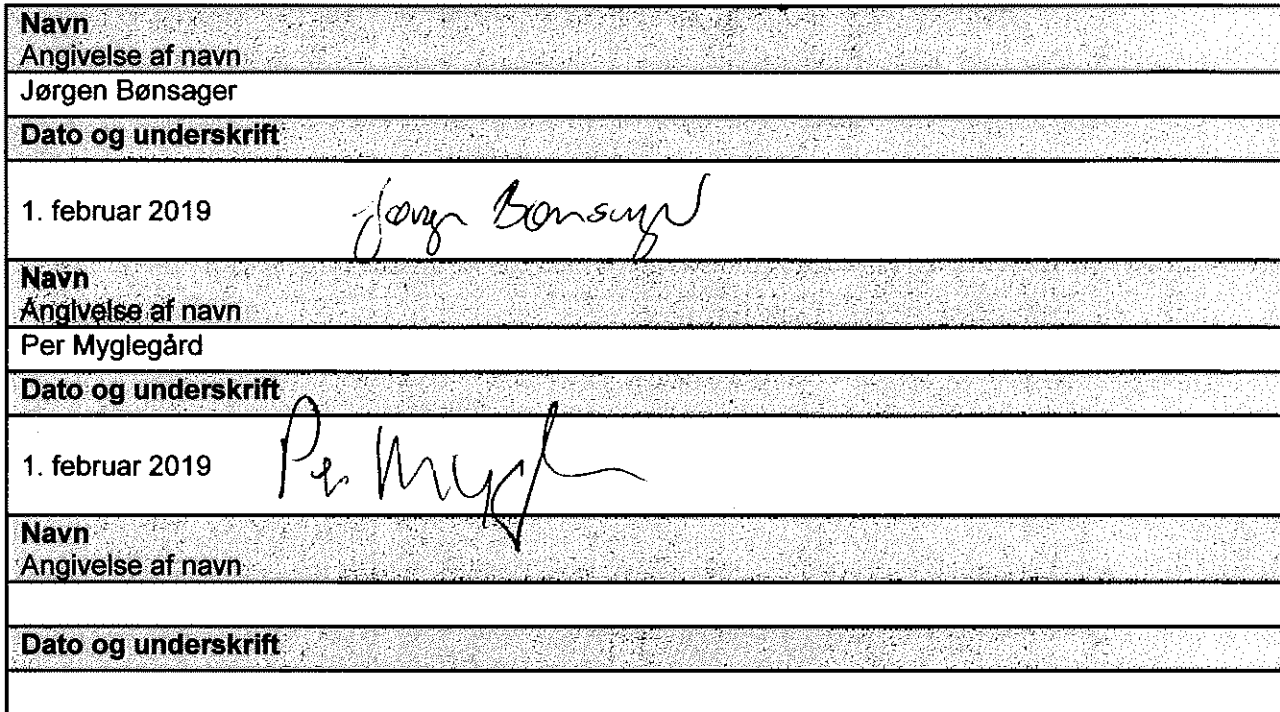 Navn
Angivelse af navn
Jørgen Bønsager
Dato og underskrift
1. februar 2019 Jørgen Bønsager
Navn
Angivelse af navn
Per Myglegård
Dato og underskrift
1. februar 2019 Per
Navn
Angivelse af navn
Dato og underskrift